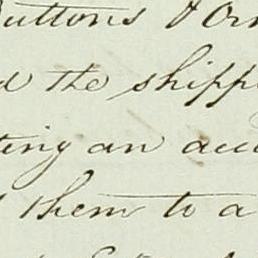 Buttons & Or
d the shipp
ting an acc
them to a